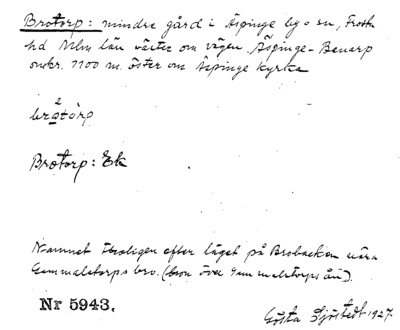 Brotorp: mindre gård i Äspinge by o sn, Frosta
hd Mlm län väster om vägen Äspinge-Benarp
omkr. 1100 m. öster om Äspinge Kyrka
Brotorp: Ek
Namnet troligen efter läget på Brobacken nära
Gummalstorps bro. (bron över Gummalstorps ån).
Nr 5943.
Gösta Sjöstedt 1927.